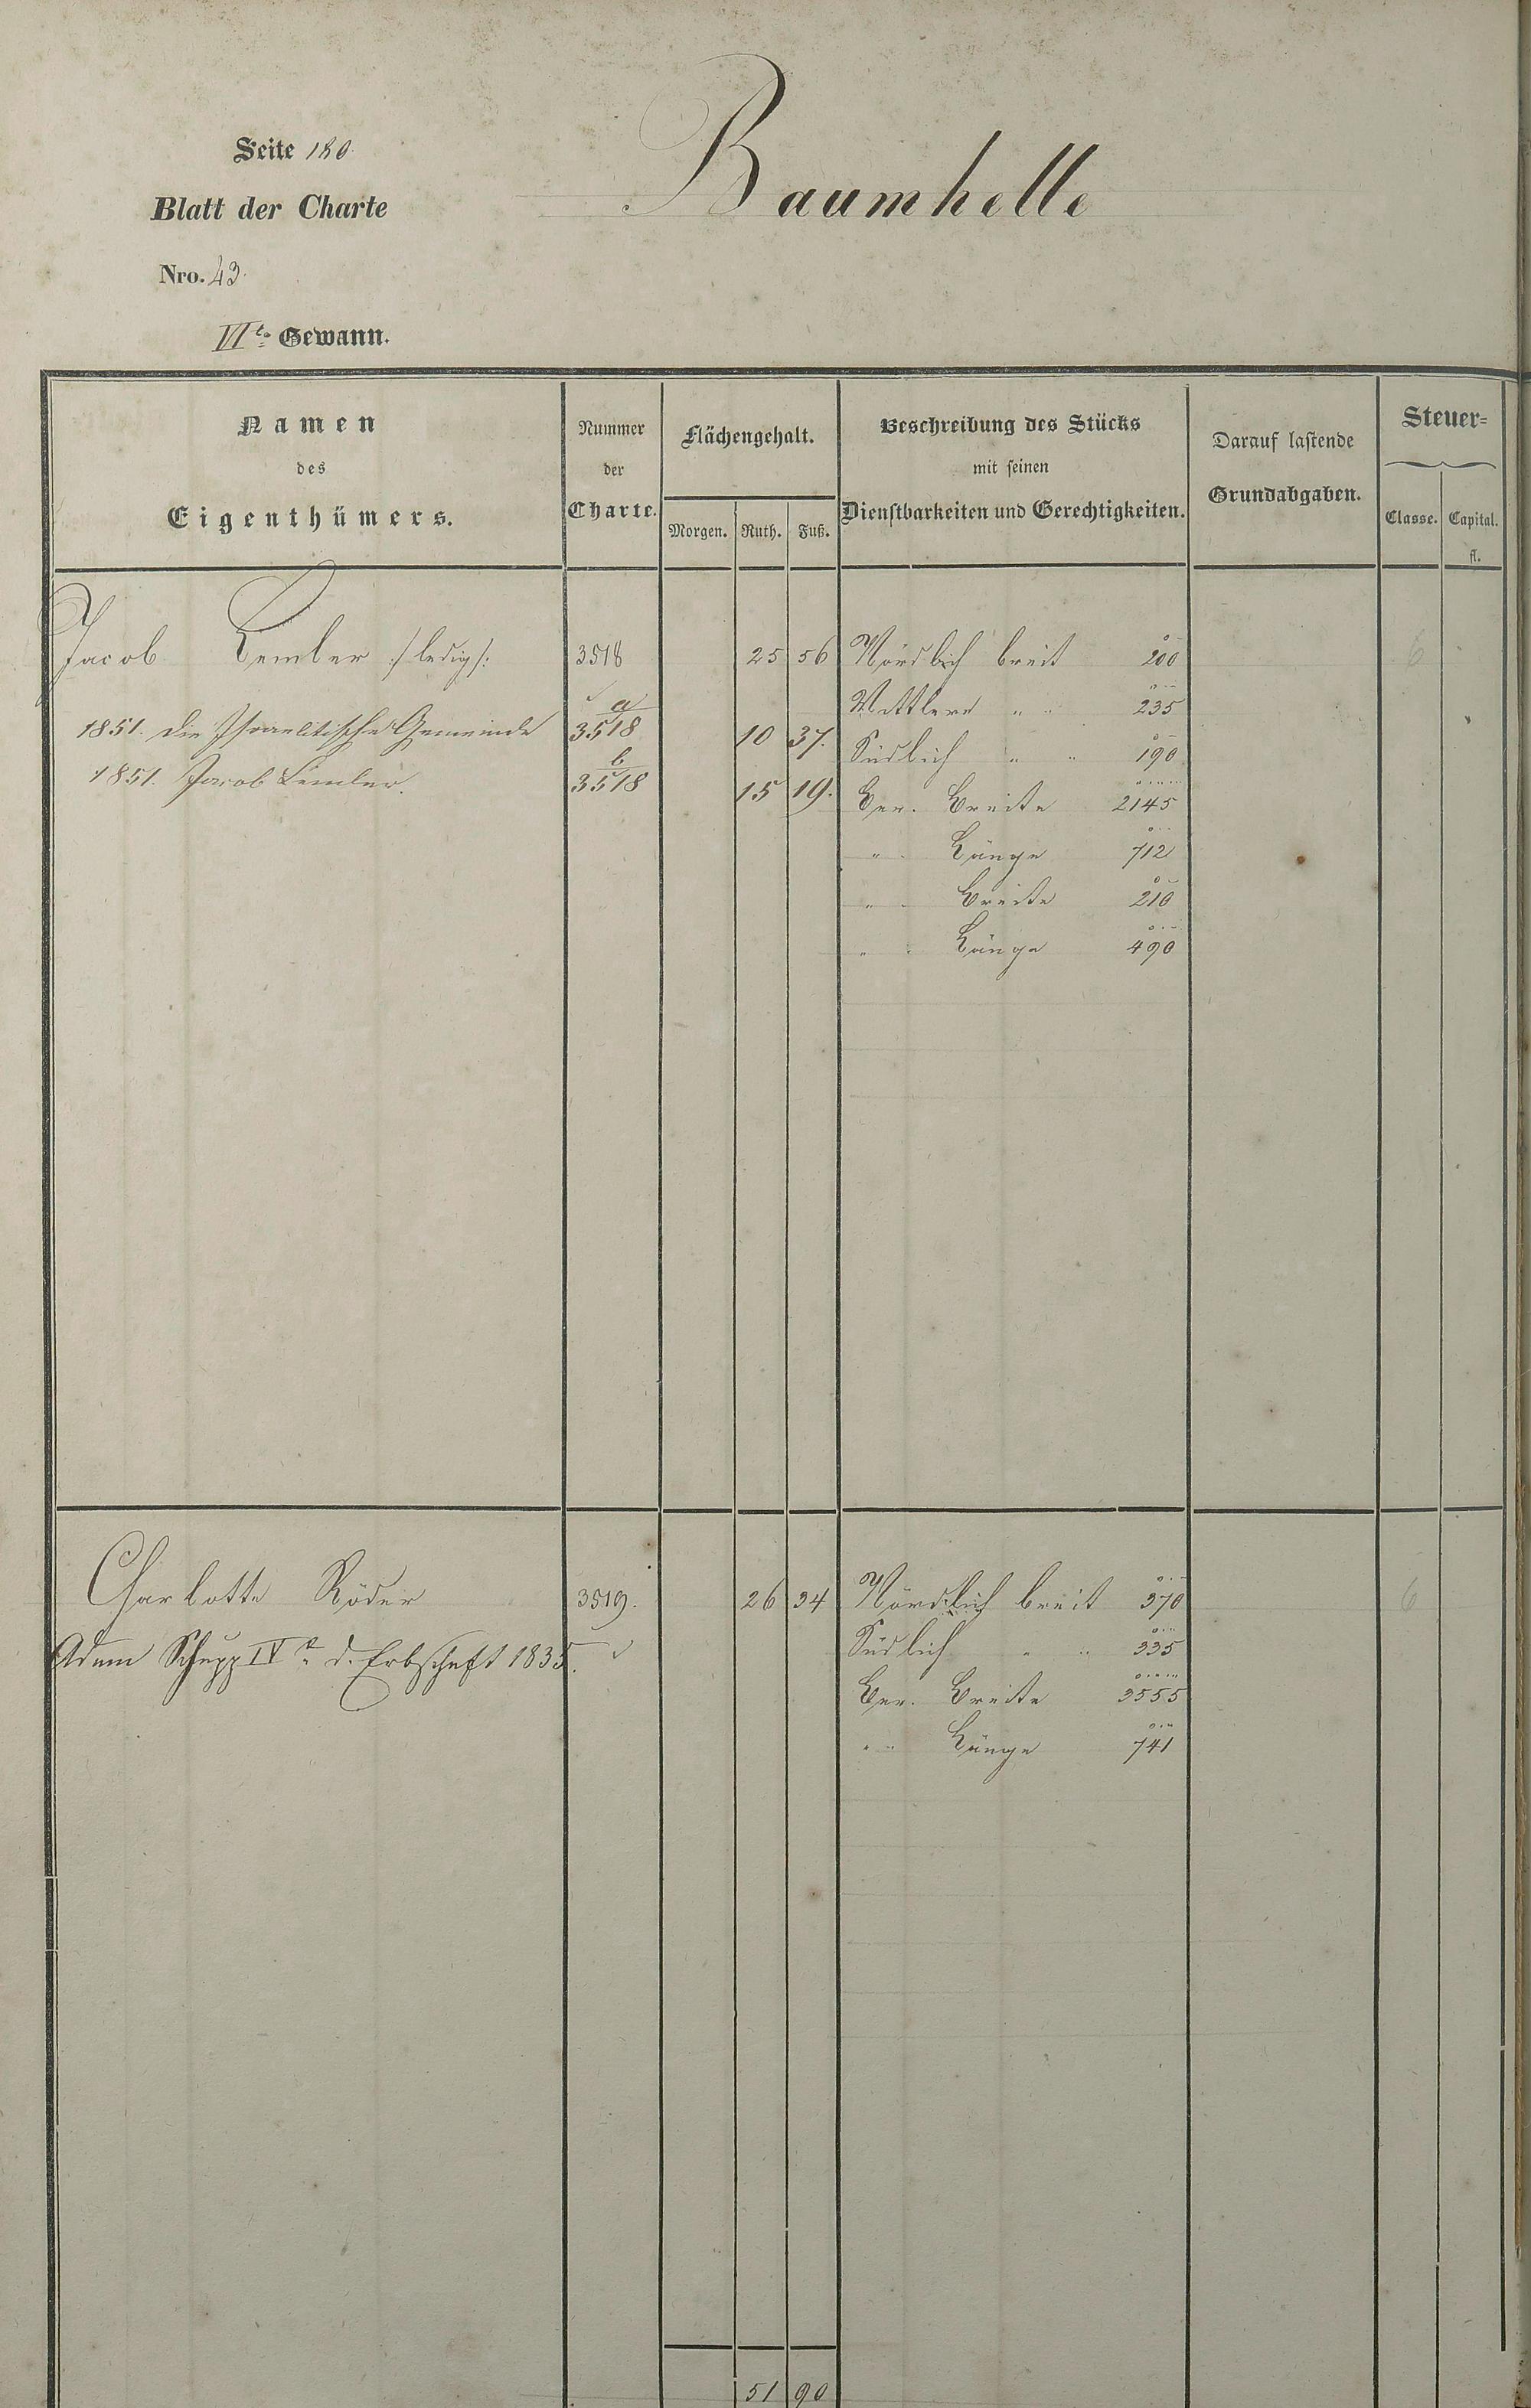 Seite 180
Baumhelle
Blatt der Charte
Nro. 43.
VIte Gewann.
Namen des Eigenthümers.
Nummer der Charte.
Flächengehalt.
Morgen. Ruth. Fuß.
Beschreibung des Stücks mit seinen Dienstbarkeiten und Gerechtigkeiten.
Darauf lastende Grundabgaben.
Steuer=
Classe. Capital.
fl.
Jacob Lemler :/ledig/: 3518 25 56 Nördlich breit 200 6
Mittlere " " 235
1851. die Israelitische Gemeinde a 3518 10 37. Südlich " " 190
1851. Jacob Lemler. b 3518 15 19. Ber. Breite 2145
" " Länge 712
" " Breite 210
" " Länge 490
Charlotte Röder 3519. 26 34 Nördlich breit 370 6
Adam Schupp IVr d. Erbschaft 1835. Südlich " " 335
Ber. Breite 3555
" " Länge 741
51 90